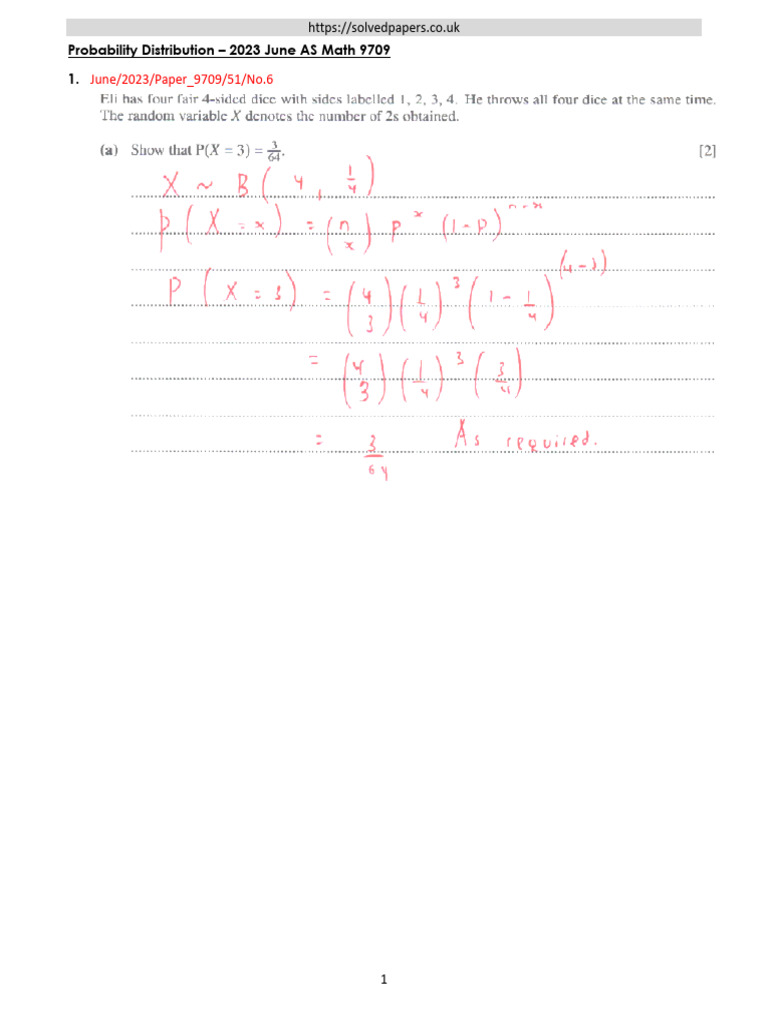 https://solvedpapers.co.uk
Probability Distribution – 2023 June AS Math 9709
1. June/2023/Paper_9709/51/No.6
Eli has four fair 4-sided dice with sides labelled 1, 2, 3, 4. He throws all four dice at the same time.
The random variable X denotes the number of 2s obtained.
(a) Show that P(X = 3) = 3/64. [2]
X ~ B(4, 1/4)
P(X = x) = (n x) p^x (1-p)^(n-x)
P(X = 3) = (4 3)(1/4)^3 (1 - 1/4)^(4-3)
= (4 3)(1/4)^3 (3/4)
= 3/64 As required.
1